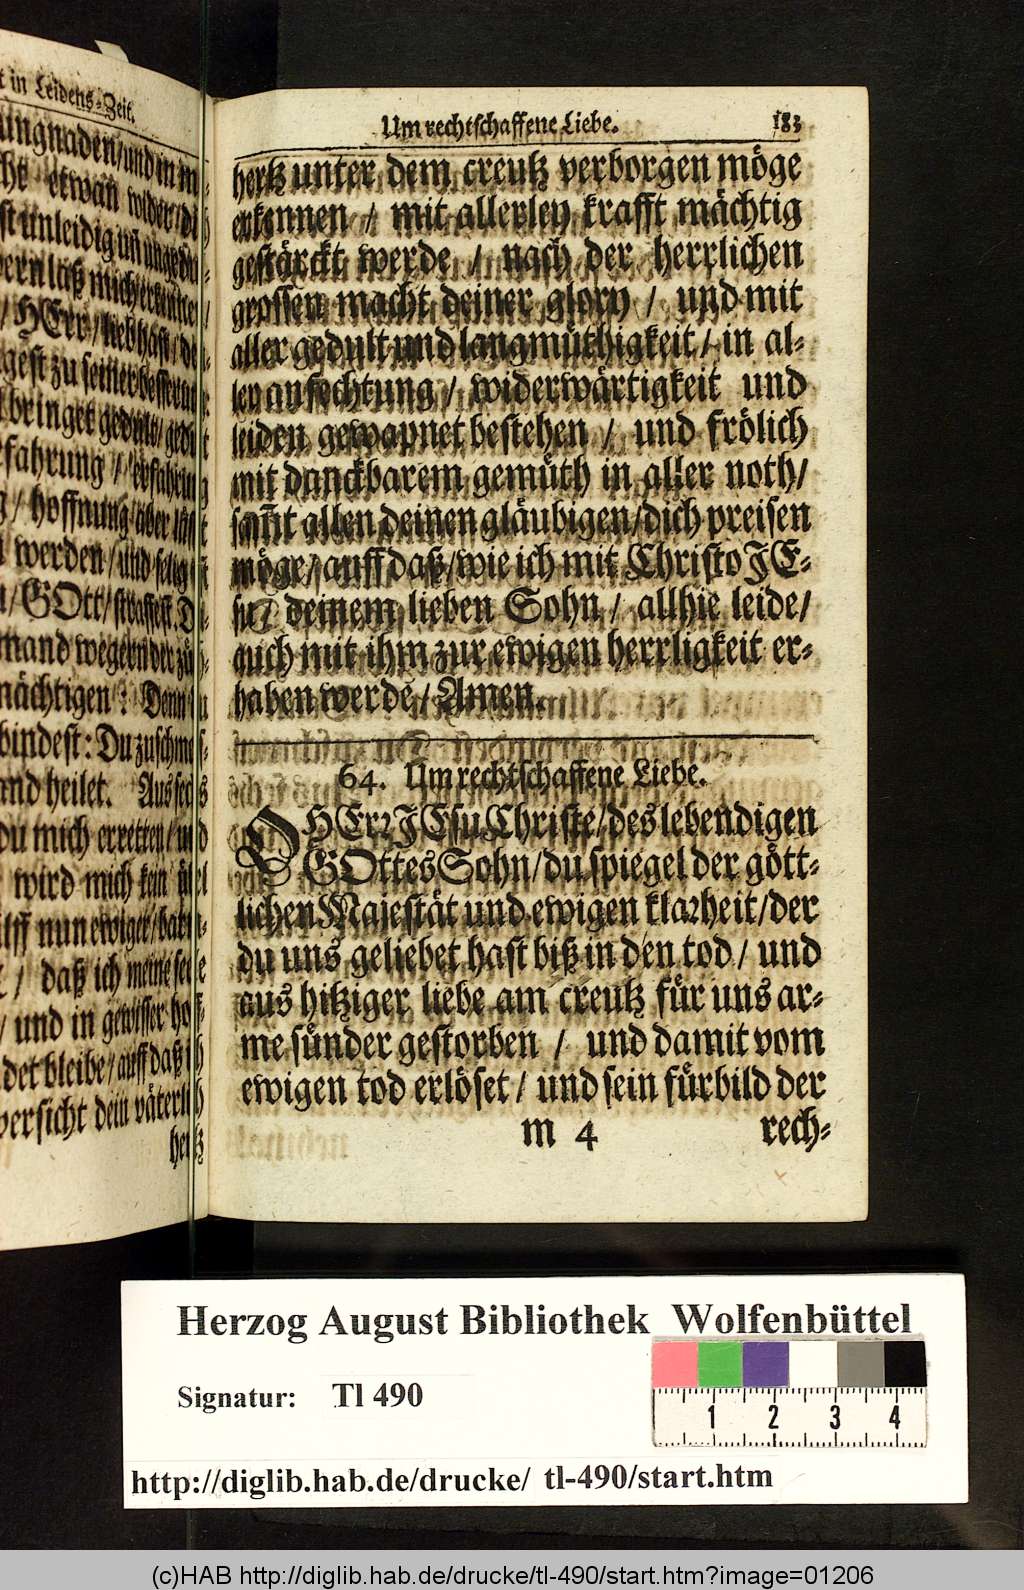 t in Leidens-Zeit.
ungnaden/und in m
etwan wider/di
st unleidig uñ unged
ern laß mich erkenne
/HErr/liebhast/de
gest zu seiner besserun
bringet gedult/gedu
fahrung/erfahrun
g/hoffnung aber läst
werden/und selig
/GOtt/straffest. D
mand wegern der zü
mächtigen: Denn
bindest: Du zuschme
und heilet. Aus sechs
du mich erretten/und
wird mich kein übel
nun ewiger/
/daß ich meine seele
/und in gewisser hof
det bleibe/auff daß ich
versicht dein väterlich
hertz
Um rechtschaffene Liebe. 183
hertz unter dem creutz verborgen möge
erkennen / mit allerley krafft mächtig
gestärckt werde / nach der herrlichen
grossen macht deiner glory / und mit
aller gedult und langmüthigkeit/in al-
len anfechtung/widerwärtigkeit und
leiden gewapnet bestehen / und frölich
mit danckbarem gemüth in aller noth/
sam̃t allen deinen gläubigen/dich preisen
möge/auff daß/wie ich mit Christo JE-
su / deinem lieben Sohn / allhie leide/
auch mit ihm zur ewigen herrligkeit er-
haben werde/Amen.
64. Um rechtschaffene Liebe.
O HErr JEsu Christe/des lebendigen
GOttes Sohn/du spiegel der gött-
lichen Majestät und ewigen klarheit/der
du uns geliebet hast biß in den tod / und
aus hitziger liebe am creutz für uns ar-
me sünder gestorben / und damit vom
ewigen tod erlöset / und sein fürbild der
m 4 rech-
Herzog August Bibliothek Wolfenbüttel
Signatur: Tl 490
1 2 3 4
http://diglib.hab.de/drucke/ tl-490/start.htm
(c)HAB http://diglib.hab.de/drucke/tl-490/start.htm?image=01206